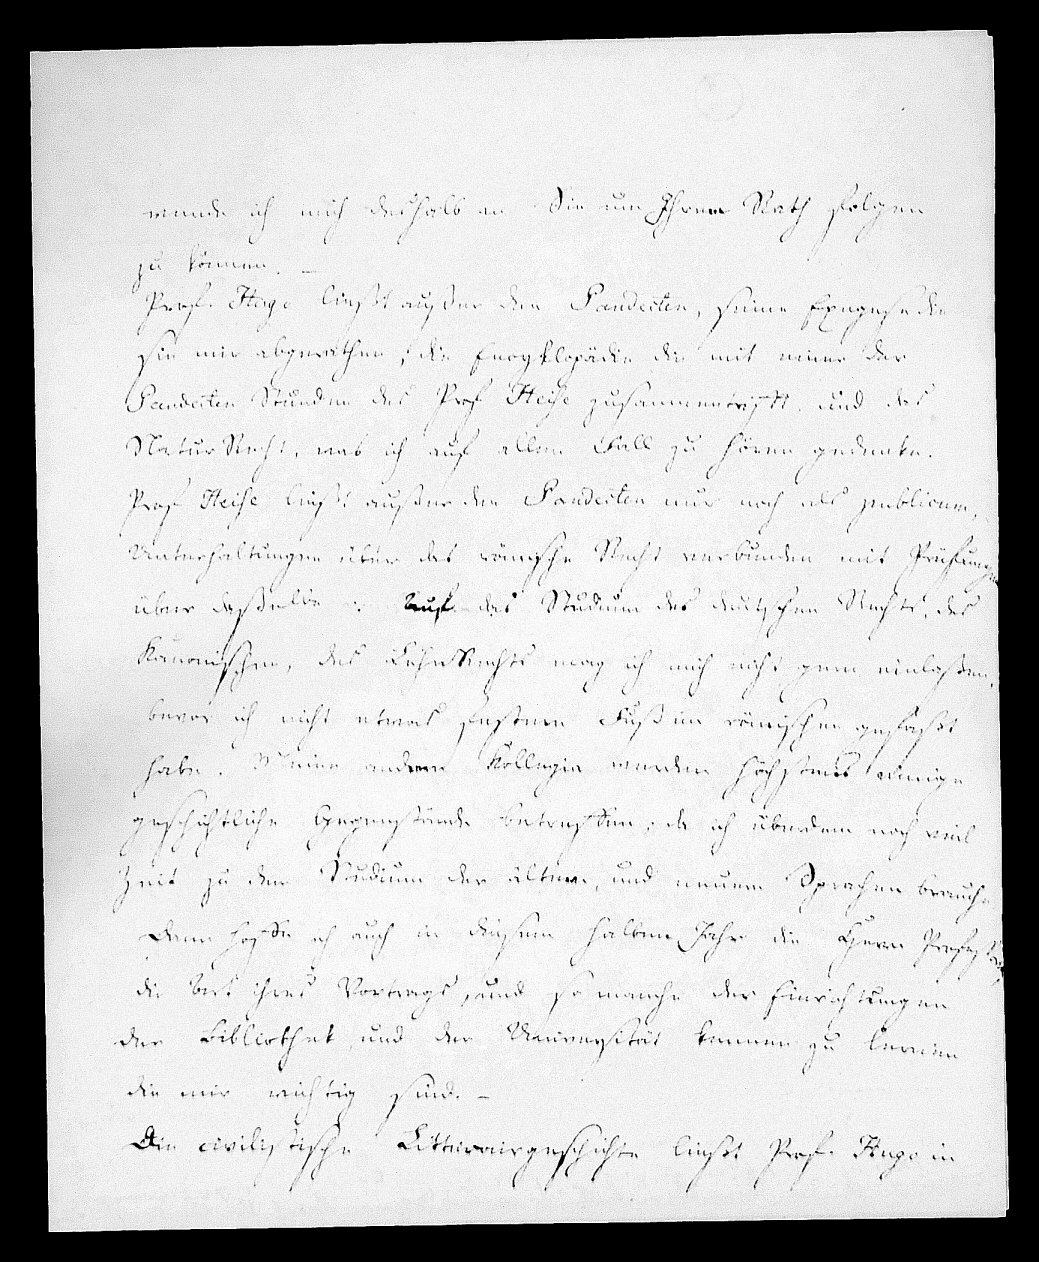 wende ich mich deshalb an Sie um Ihrem Rath folgen
zu können. –
Prof. Hugo liest außer den Pandecten, seine Exegese die
sie mir abgerathen, die Encyklopädie die mit einer der
Pandecten Stunden des Prof Heise zusammentrifft, und das
Natur Recht, was ich auf allen Fall zu hören gedenke.
Prof Heise liest außer den Pandecten nur noch als publicum,
Unterhaltungen über das römische Recht verbunden mit Prüfungen
über dasselbe. Auf das Studium des deutschen Rechts, des
Kanonischen, des LehnRechts mag ich mich nicht gern einlaßen,
bevor ich nicht etwas festeren Fuß im römischen gefaßt
habe. Meine andern Kollegia werden höchstens einige
geschichtliche Gegenstände betreffen, da ich überdem noch viel
Zeit zu dem Studium der ältern, und neuern Sprachen brauche
Dann hoffe ich auch in diesem halben Jahr die Herrn Professoren
die Art ihres Vortrags, und so manche der Einrichtungen
der Bibliothek und der Universität kennen zu lernen
die mir wichtig sind. –
Die civilistische Litterairgeschichte liest Prof. Hugo in